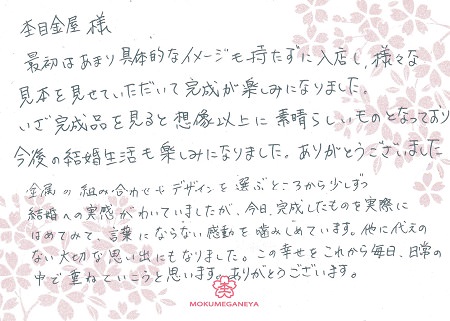 杢目金屋 様
最初はあまり具体的なイメージも持たずに入店し、様々な
見本を見せていただいて完成が楽しみになりました。
いざ完成品を見ると想像以上に素晴らしいものとなっており
今後の結婚生活も楽しみになりました。ありがとうございました
金属の組み合わせやデザインを選ぶところから少しずつ
結婚への実感がわいていましたが、今日、完成したものを実際に
はめてみて、言葉にならない感動を噛みしめています。他に代えの
ない大切な思い出にもなりました。この幸せをこれから毎日、日常の
中で重ねていこうと思います。ありがとうございます。
MOKUMEGANEYA